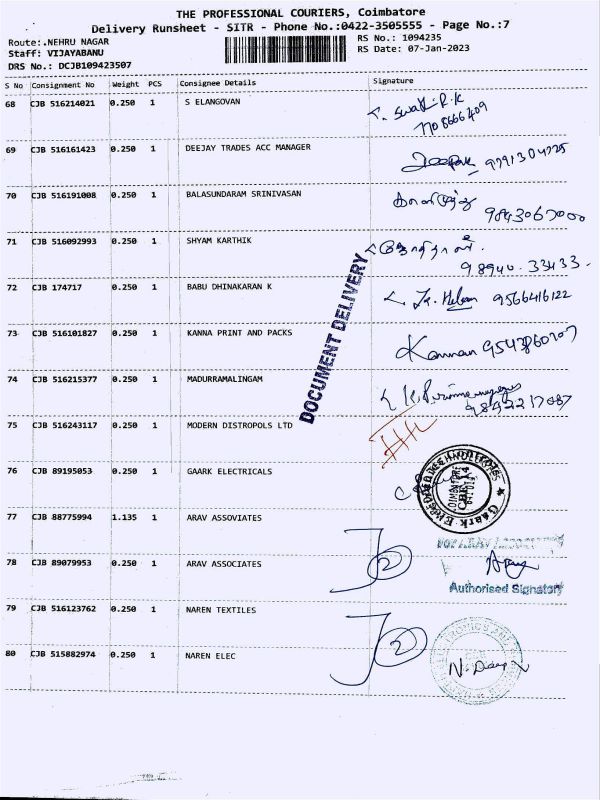 THE PROFESSIONAL COURIERS, Coimbatore
Delivery Runsheet - SITR - Phone No.:0422-3505555 - Page No.:7
Route:.NEHRU NAGAR RS No.: 1094235
Staff: VIJAYABANU RS Date: 07-Jan-2023
DRS No.: DCJB109423507
S No Consignment No Weight PCS Consignee Details Signature
68 CJB 516214021 0.250 1 S ELANGOVAN
69 CJB 516161423 0.250 1 DEEJAY TRADES ACC MANAGER Deepak
70 CJB 516191008 0.250 1 BALASUNDARAM SRINIVASAN
71 CJB 516092993 0.250 1 SHYAM KARTHIK
98940. 33433.
72 CJB 174717 0.250 1 BABU DHINAKARAN K 9566416122
73 CJB 516101827 0.250 1 KANNA PRINT AND PACKS Kannan
74 CJB 516215377 0.250 1 MADURRAMALINGAM
DOCUMENT DELIVERY
75 CJB 516243117 0.250 1 MODERN DISTROPOLS LTD
76 CJB 89195053 0.250 1 GAARK ELECTRICALS
77 CJB 88775994 1.135 1 ARAV ASSOVIATES
78 CJB 89079953 0.250 1 ARAV ASSOCIATES 2
Authorised Signatory
79 CJB 516123762 0.250 1 NAREN TEXTILES
80 CJB 515882974 0.250 1 NAREN ELEC 2